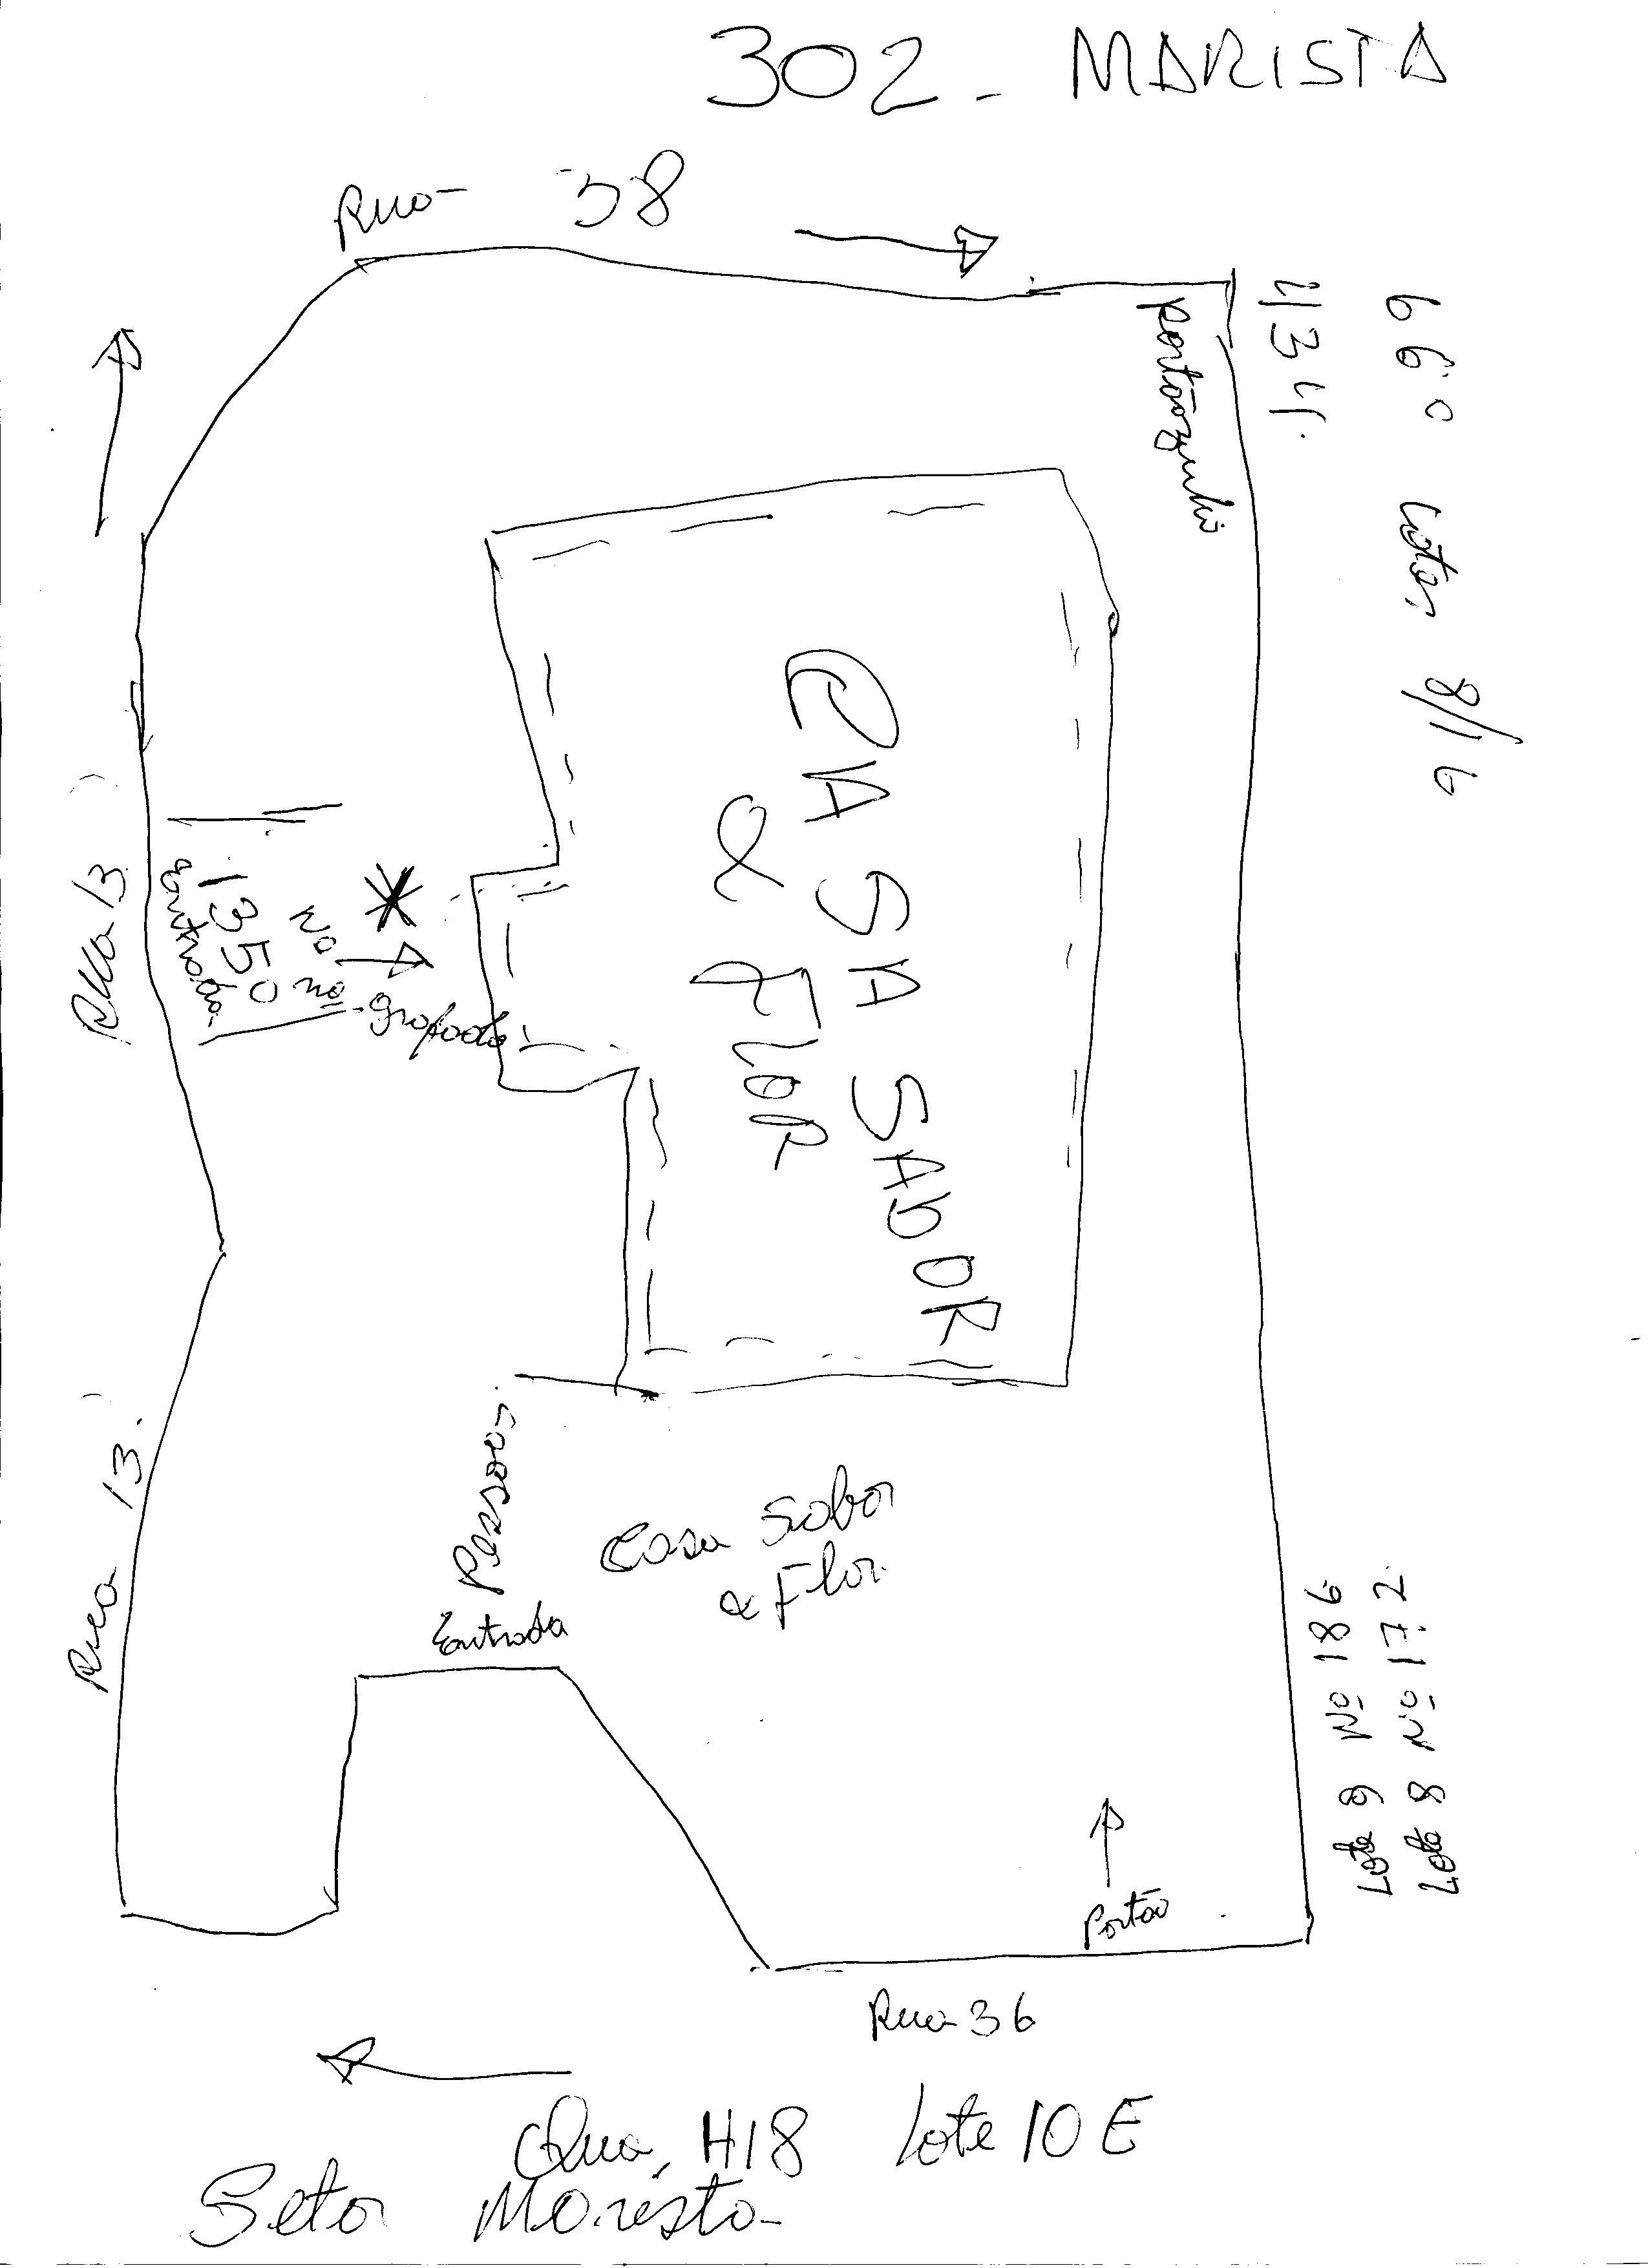 302 - MARISTA
Rua 38
portãozinho
434.
660 Lotes 8/16
Rua 13
entrada
1350
No
grafado
CASA SABOR
& FLOR
Rua 13.
Pessoas
Entrada
Casa Sabor
& Flor.
Lote 9 Nº 186
Lote 8 Nº 172
Portão
Rua 36
Qua, H18 Lote 10 E
Setor Marista